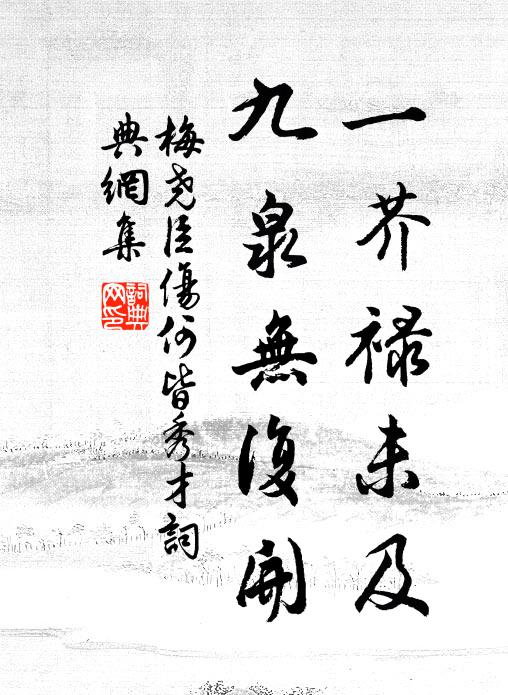 一芥禄未及
九泉無復開
梅尧臣傷何皆秀才詞
典網集
詞典
网印